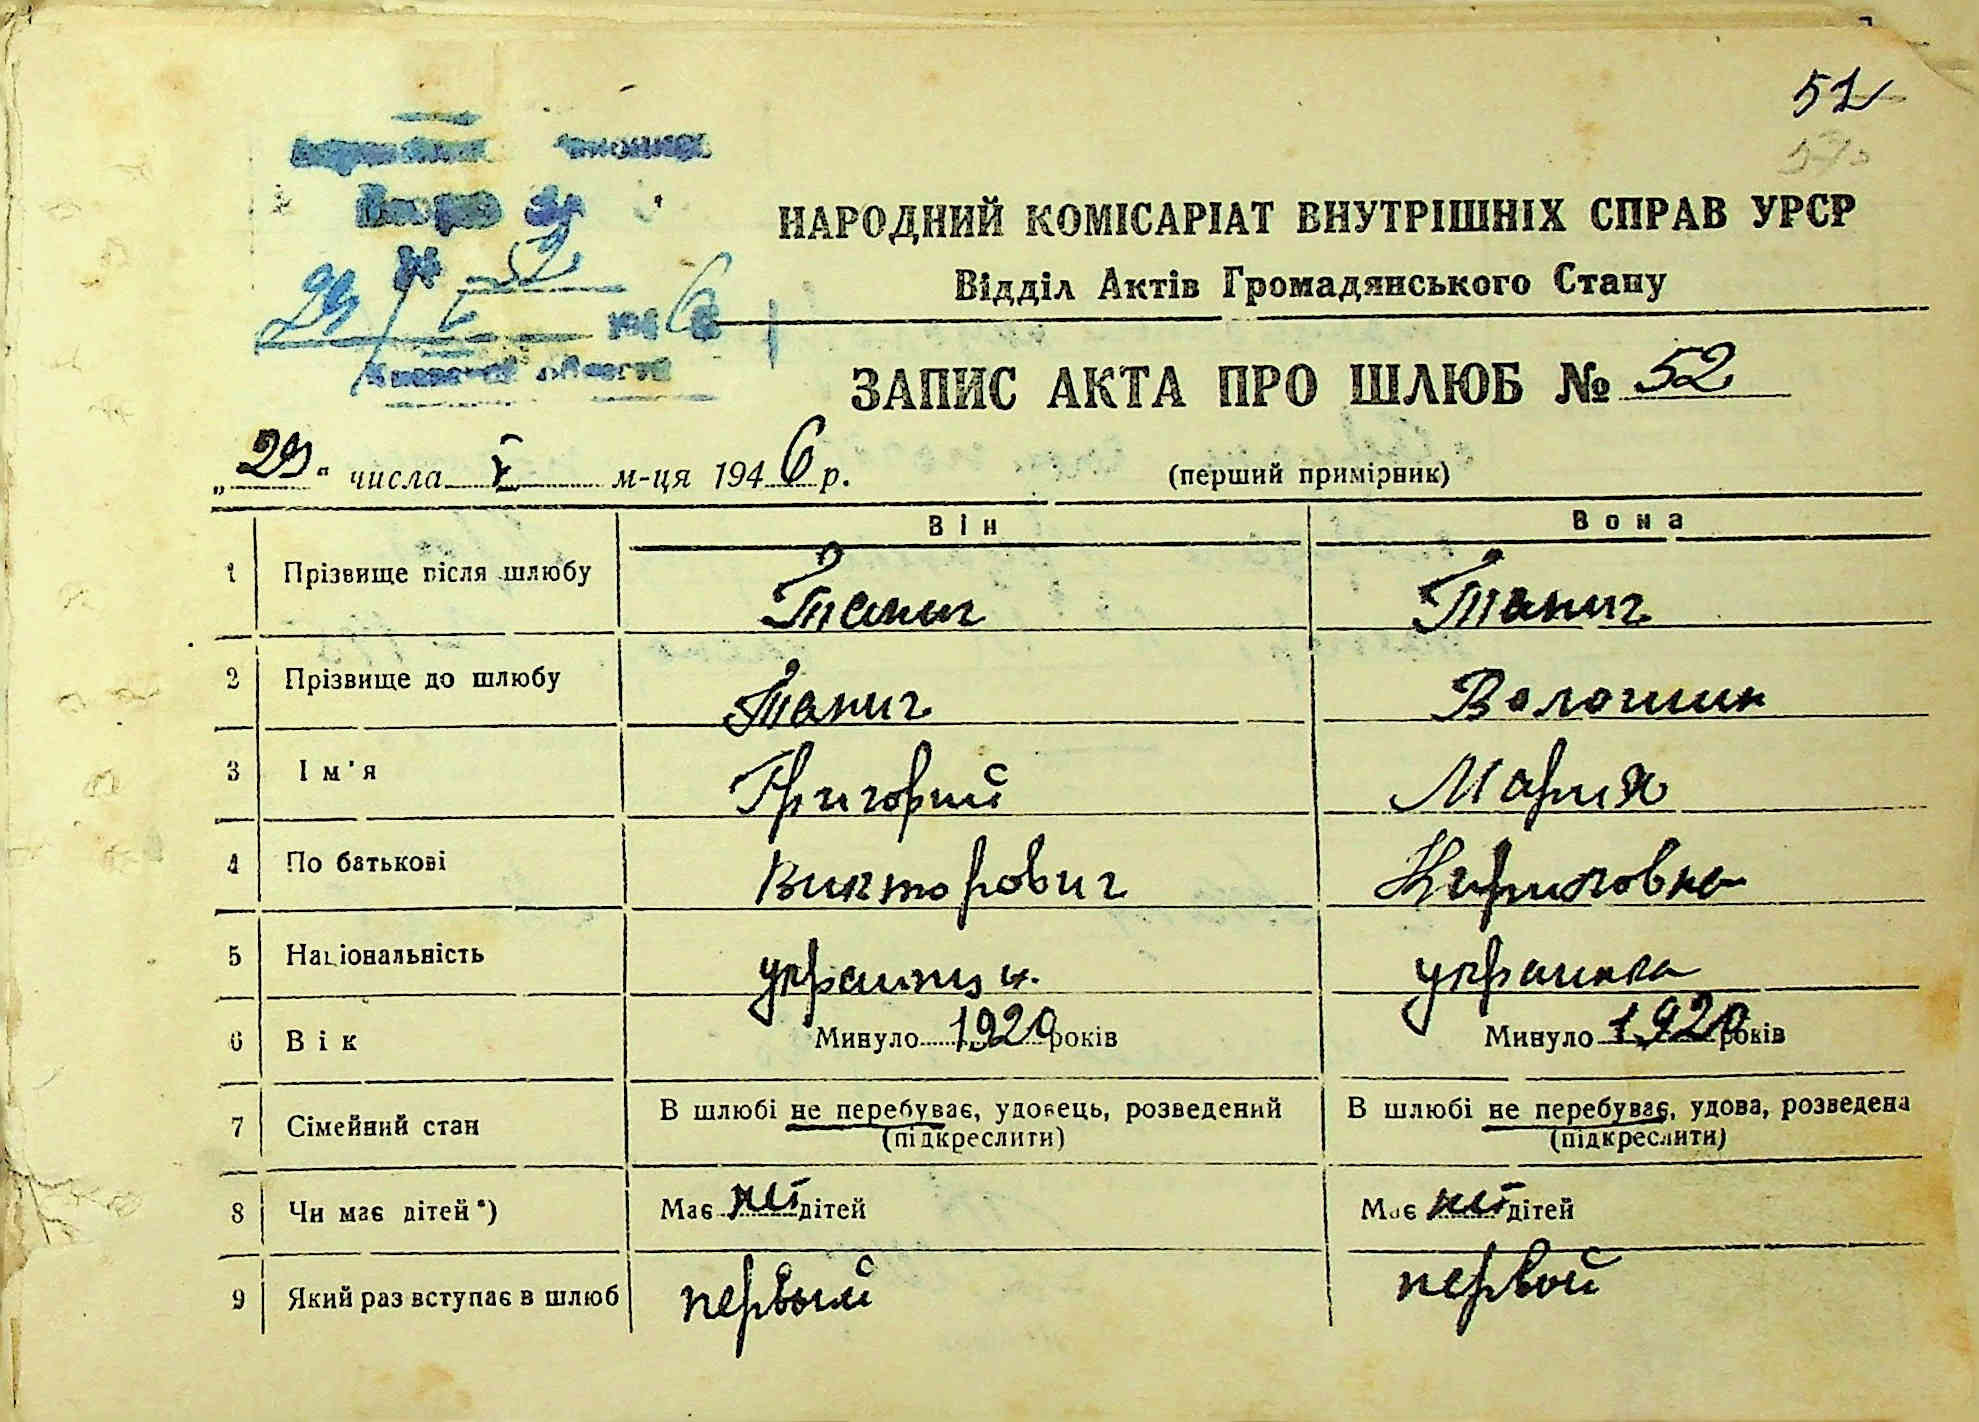 52
НАРОДНИЙ КОМІСАРІАТ ВНУТРІШНІХ СПРАВ УРСР
Відділ Актів Громадянського Стану
№ 52
29/I 1946
области
ЗАПИС АКТА ПРО ШЛЮБ № 52
„29“ числа I м-ця 1946 р. (перший примірник)
Він Вона
1 Прізвище після шлюбу Танич Танич
2 Прізвище до шлюбу Танич Волошин
3 Ім'я Григорий Мария
4 По батькові Викторович Кириловна
5 Національність украинец. украинка
6 Вік Минуло 1920 років Минуло 1920 років
7 Сімейний стан В шлюбі не перебуває, удовець, розведений В шлюбі не перебуває, удова, розведена
(підкреслити) (підкреслити)
8 Чи має дітей*) Має нет дітей Має нет дітей
9 Який раз вступає в шлюб первый первой